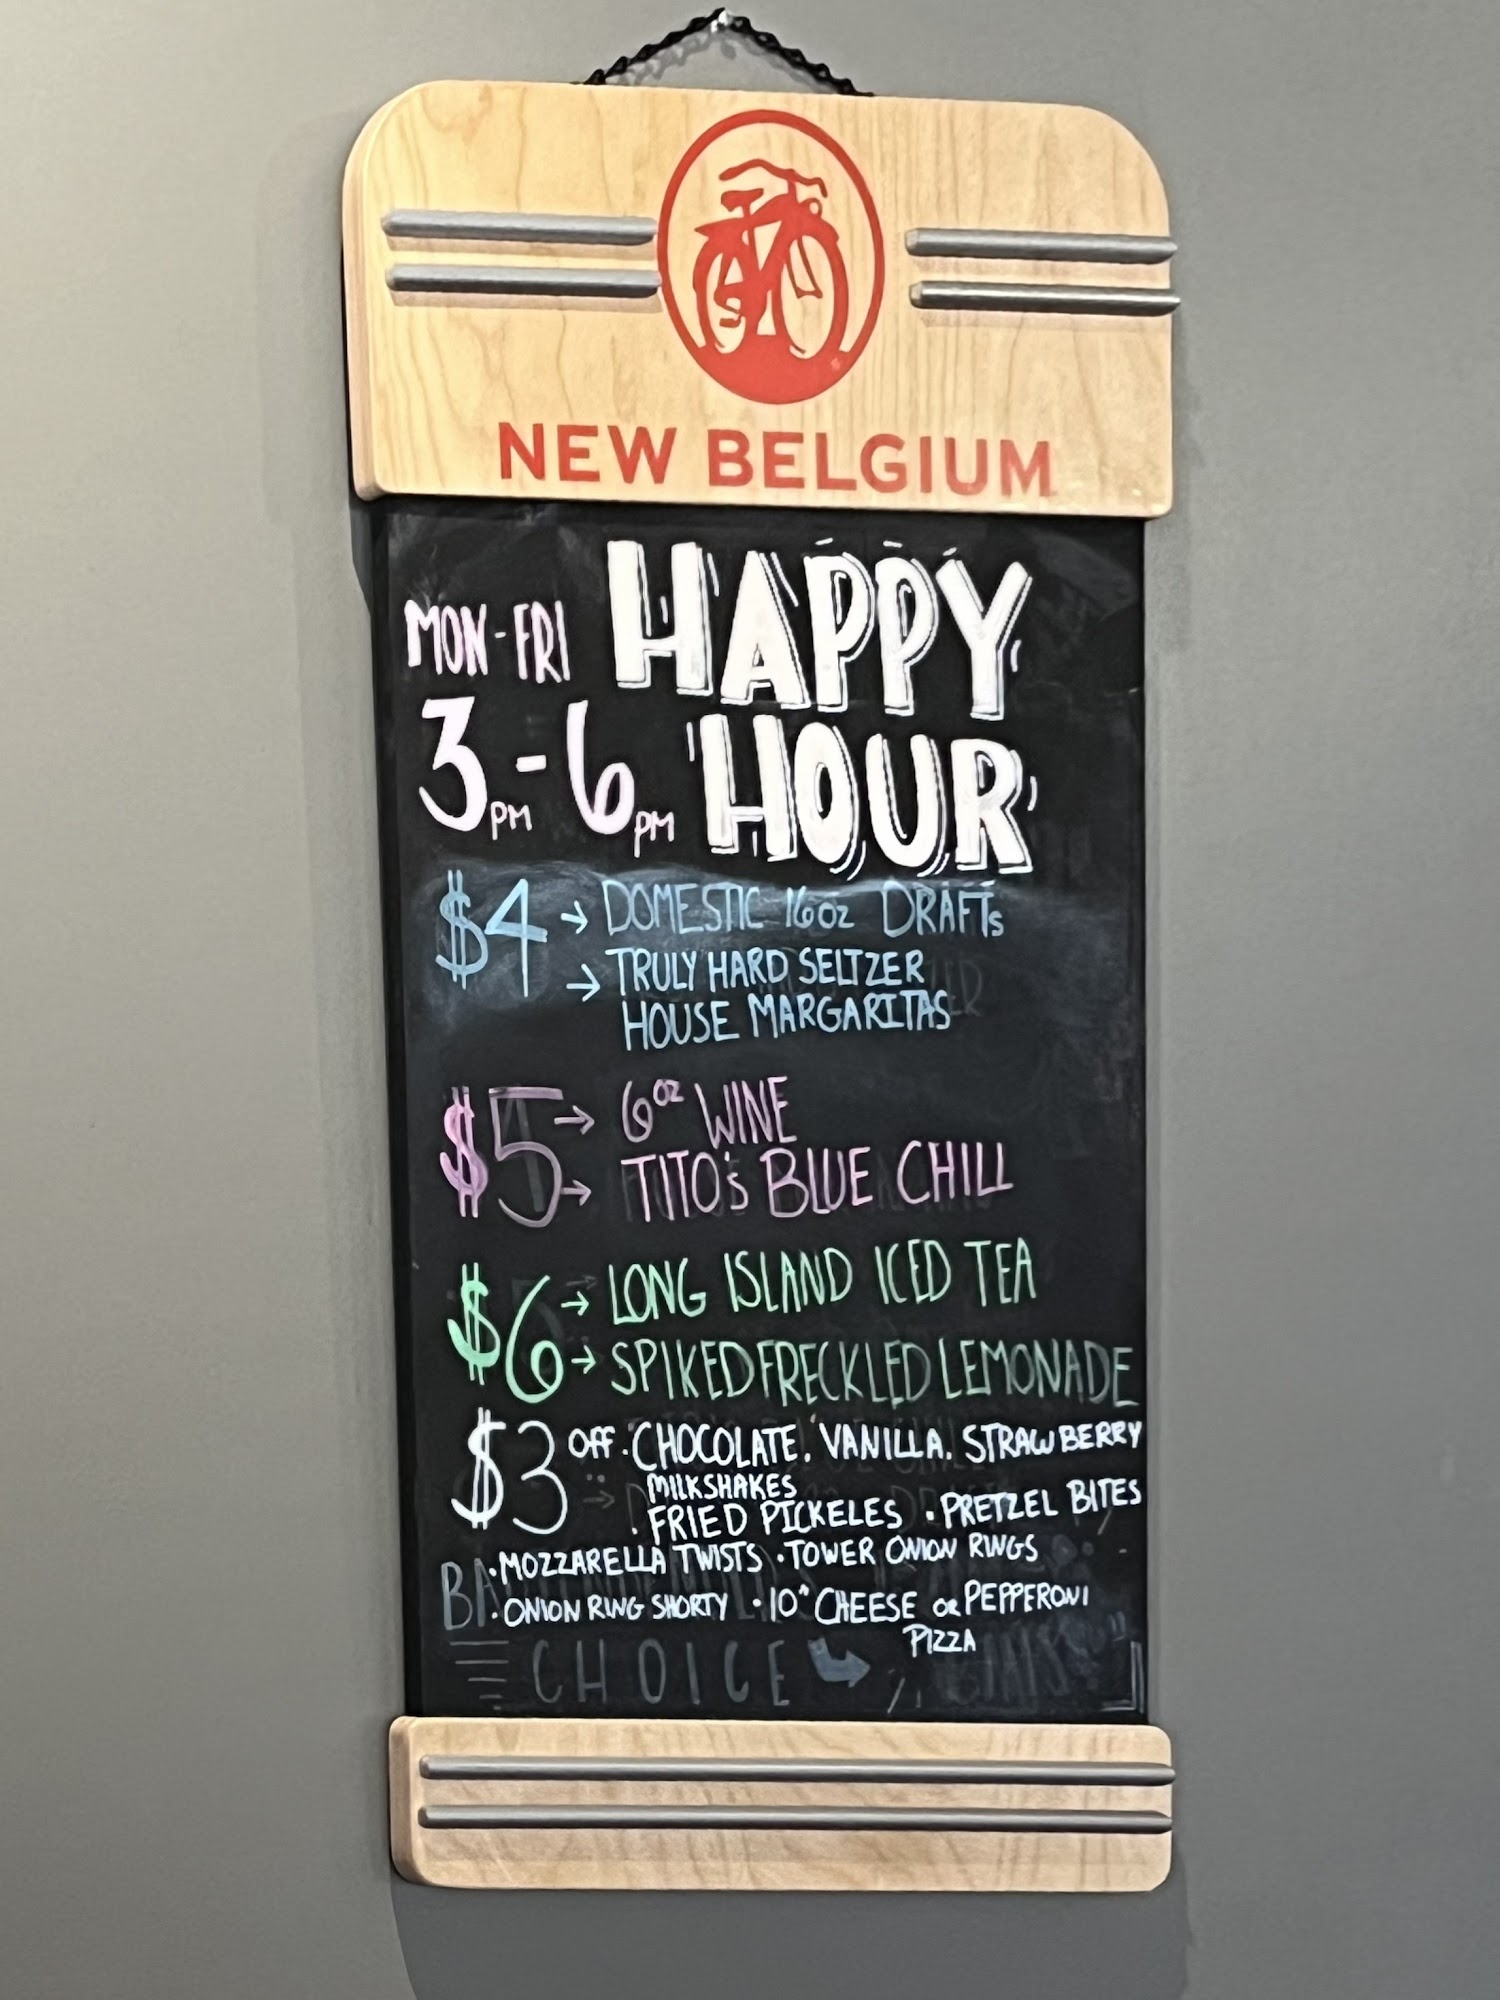 NEW BELGIUM
HAPPY
MON-FRI
3PM-6PM
HOUR
$4 → DOMESTIC 16oz DRAFTs
→ TRULY HARD SELTZER
HOUSE MARGARITAS
$5 → 6oz WINE
→ TITO's BLUE CHILL
$6 → LONG ISLAND ICED TEA
→ SPIKED FRECKLED LEMONADE
$3 OFF · CHOCOLATE, VANILLA, STRAWBERRY
MILKSHAKES
· FRIED PICKELES · PRETZEL BITES
· MOZZARELLA TWISTS · TOWER ONION RINGS
· ONION RING SHORTY · 10" CHEESE OR PEPPERONI
PIZZA
CHOICE